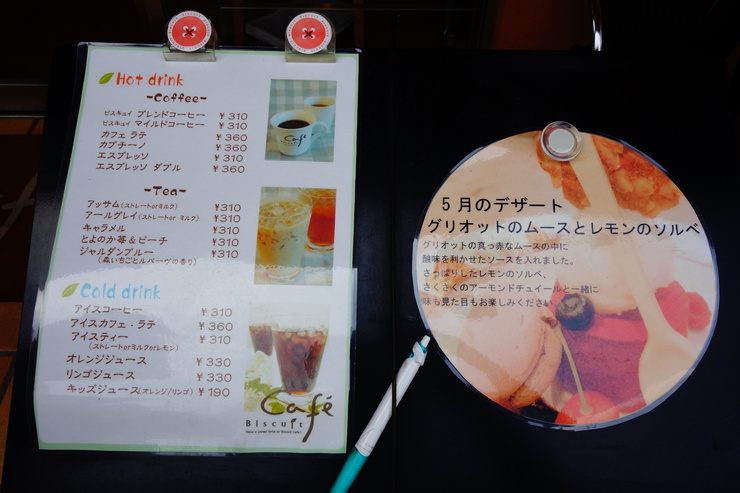 Hot drink
-Coffee-
ビスキュイ ブレンドコーヒー ￥310
ビスキュイ マイルドコーヒー ￥310
カフェ ラテ ￥360
カプチーノ ￥360
エスプレッソ ￥310
エスプレッソ ダブル ￥360
-Tea-
アッサム(ストレートorミルク) ￥310
アールグレイ(ストレートor ミルク) ￥310
キャラメル ￥310
とよのか苺＆ピーチ ￥310
ジャルダンブルー ￥310
(森いちごとルバーヴの香り)
Cold drink
アイスコーヒー ￥310
アイスカフェ・ラテ ￥360
アイスティー ￥310
(ストレートorミルクorレモン)
オレンジジュース ￥330
リンゴジュース ￥330
キッズジュース(オレンジ/リンゴ) ￥190
Café
Biscuit
Café
５月のデザート
グリオットのムースとレモンのソルベ
グリオットの真っ赤なムースの中に
酸味を利かせたソースを入れました。
さっぱりしたレモンのソルベ、
さくさくのアーモンドチュイールと一緒に
味も見た目もお楽しみください